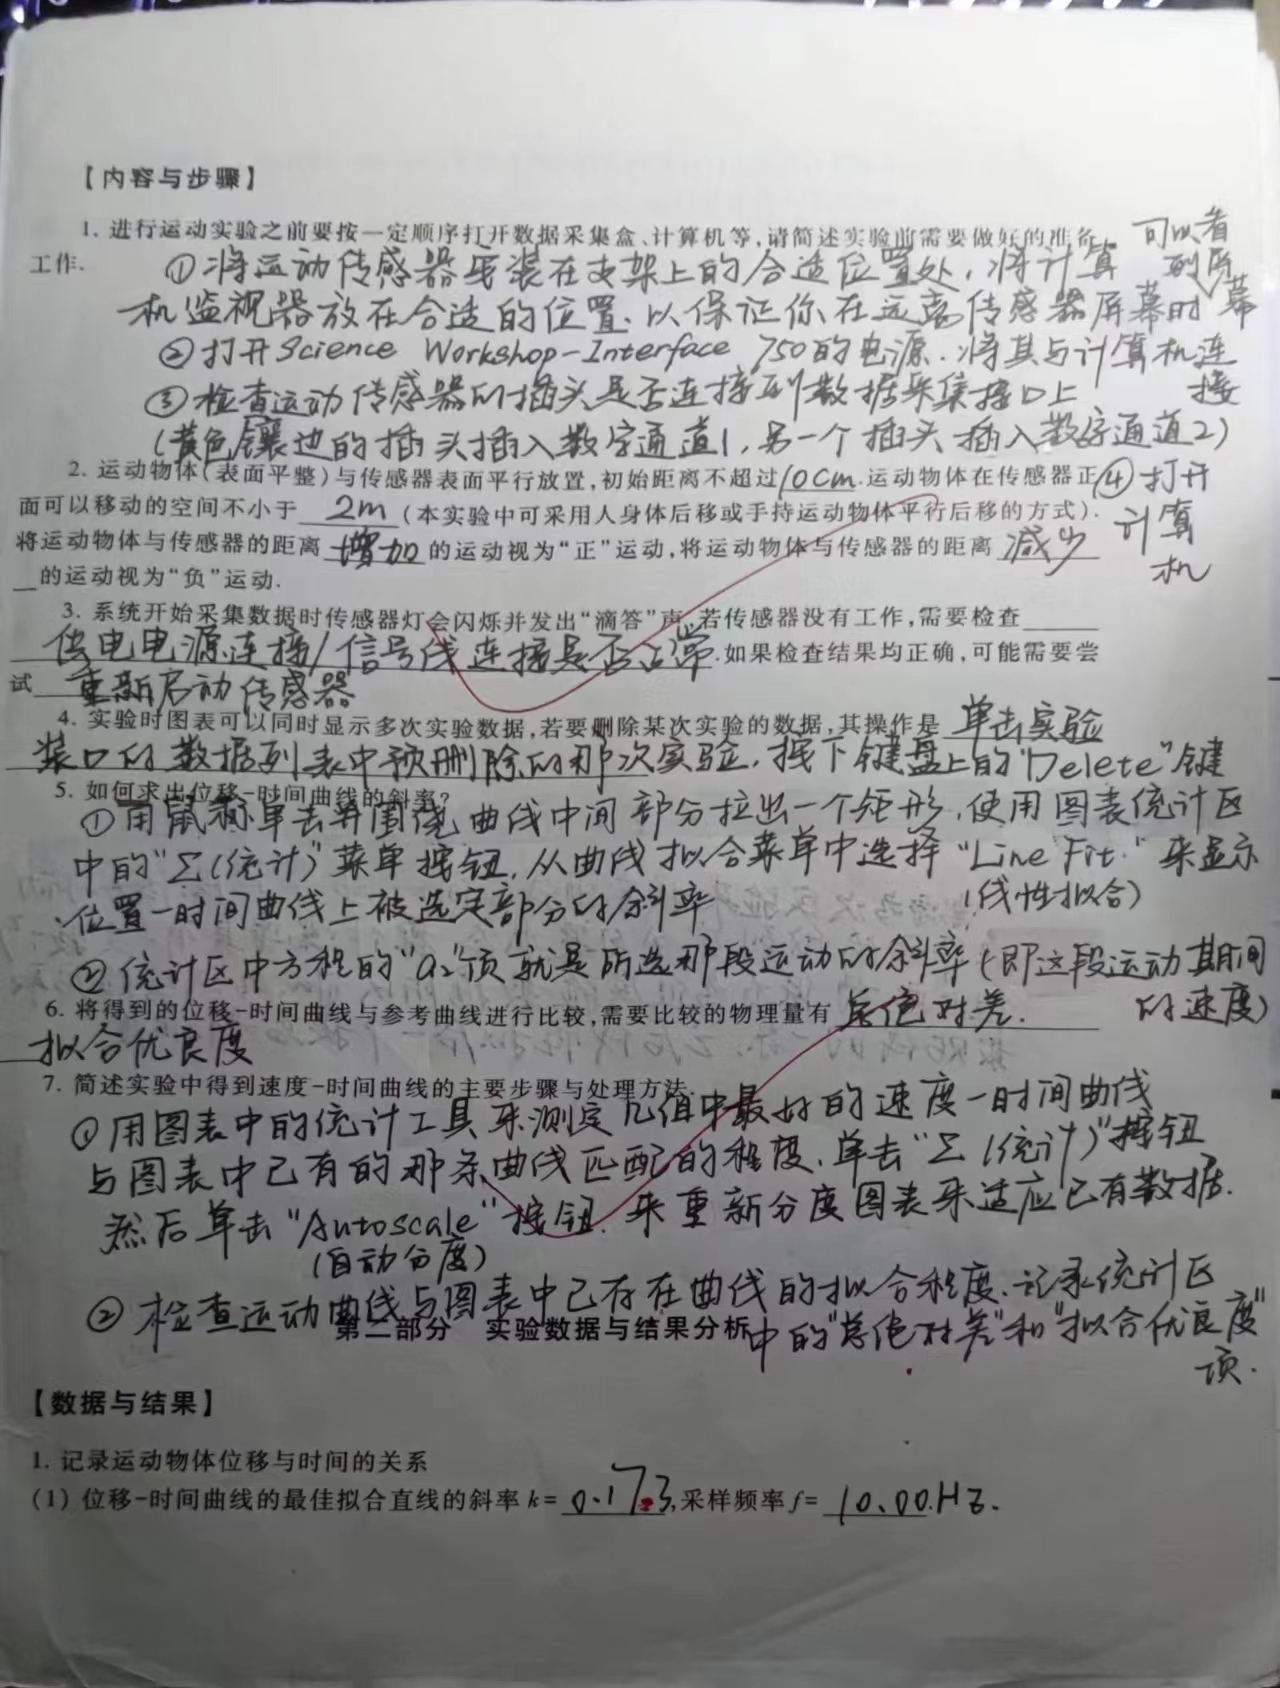 【内容与步骤】
1. 进行运动实验之前要按一定顺序打开数据采集盒、计算机等,请简述实验前需要做好的准备
工作.
①将运动传感器安装在支架上的合适位置处,将计算
机监视器放在合适的位置.以保证你在远离传感器屏幕时
可以看
到屏
幕
②打开Science Workshop-Interface 750的电源.将其与计算机连
接
③检查运动传感器的插头是否连接到数据采集接口上
(黄色镶边的插头插入数字通道1,另一个插头插入数字通道2)
④打开
计算
机
2. 运动物体(表面平整)与传感器表面平行放置,初始距离不超过10cm.运动物体在传感器正
面可以移动的空间不小于 2m (本实验中可采用人身体后移或手持运动物体平行后移的方式).
将运动物体与传感器的距离 增加 的运动视为“正”运动,将运动物体与传感器的距离 减少
的运动视为“负”运动.
3. 系统开始采集数据时传感器灯会闪烁并发出“滴答”声,若传感器没有工作,需要检查
供电电源连接/信号线连接是否正常.如果检查结果均正确,可能需要尝
试 重新启动传感器
4. 实验时图表可以同时显示多次实验数据,若要删除某次实验的数据,其操作是 单击实验
装口的数据列表中预删除的那次实验,按下键盘上的"Delete"键
5. 如何求出位移-时间曲线的斜率?
①用鼠标单击并围绕曲线中间部分拉出一个矩形,使用图表统计区
中的"Σ(统计)"菜单按钮,从曲线拟合菜单中选择"Line Fit."来显示
(线性拟合)
位置一时间曲线上被选定部分的斜率
②统计区中方程的"a₂"项就是所选那段运动的斜率(即这段运动期间
的速度)
6. 将得到的位移-时间曲线与参考曲线进行比较,需要比较的物理量有 总绝对差.
拟合优良度
7. 简述实验中得到速度-时间曲线的主要步骤与处理方法.
①用图表中的统计工具来测定几值中最好的速度一时间曲线
与图表中已有的那条曲线匹配的程度,单击"Σ(统计)"按钮
然后单击"Autoscale"按钮.来重新分度图表来适应已有数据.
(自动分度)
②检查运动曲线与图表中已存在曲线的拟合程度.记录统计区
中的"总绝对差"和"拟合优良度"
项.
第二部分 实验数据与结果分析
【数据与结果】
1. 记录运动物体位移与时间的关系
(1) 位移-时间曲线的最佳拟合直线的斜率 k= 0.173,采样频率 f= 10.00.HZ.